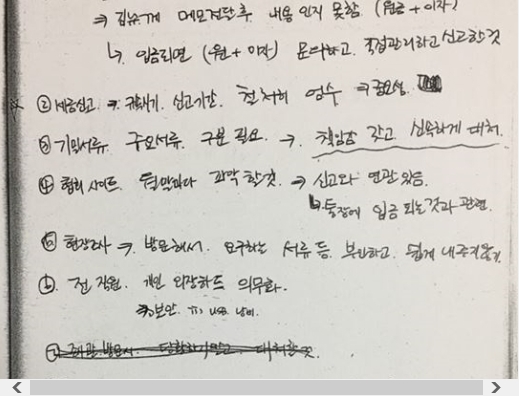 ⇒ 김뉴게 메모전달 후 내용 인지 못함 (원금 + 이자)
↳ 입금되면 (원 + 이자) 문의하고. 직접관리하고 신고할것
② 세금신고. ⇒ 귀태기. 신고기간. 철저히 엄수 ⇒ 중요성.
③ 기밀서류. 중요서류. 구분 필요. → 책임감 갖고 신속하게 대처.
④ 협회 사이트. 월말마다 파악 할것. ⇒ 신고와 연관 있음.
↳ 통장에 입금 되는것과 관련.
⑤ 현장조사 ⇒ 방문해서. 요구하는 서류 등. 부인하고. 쉽게 내주지않기.
⑥. 전 직원. 개인 외장하드 의무화.
⇒ 보안. USB
⑦ 방문시. 당황하지말고. 대처할것.